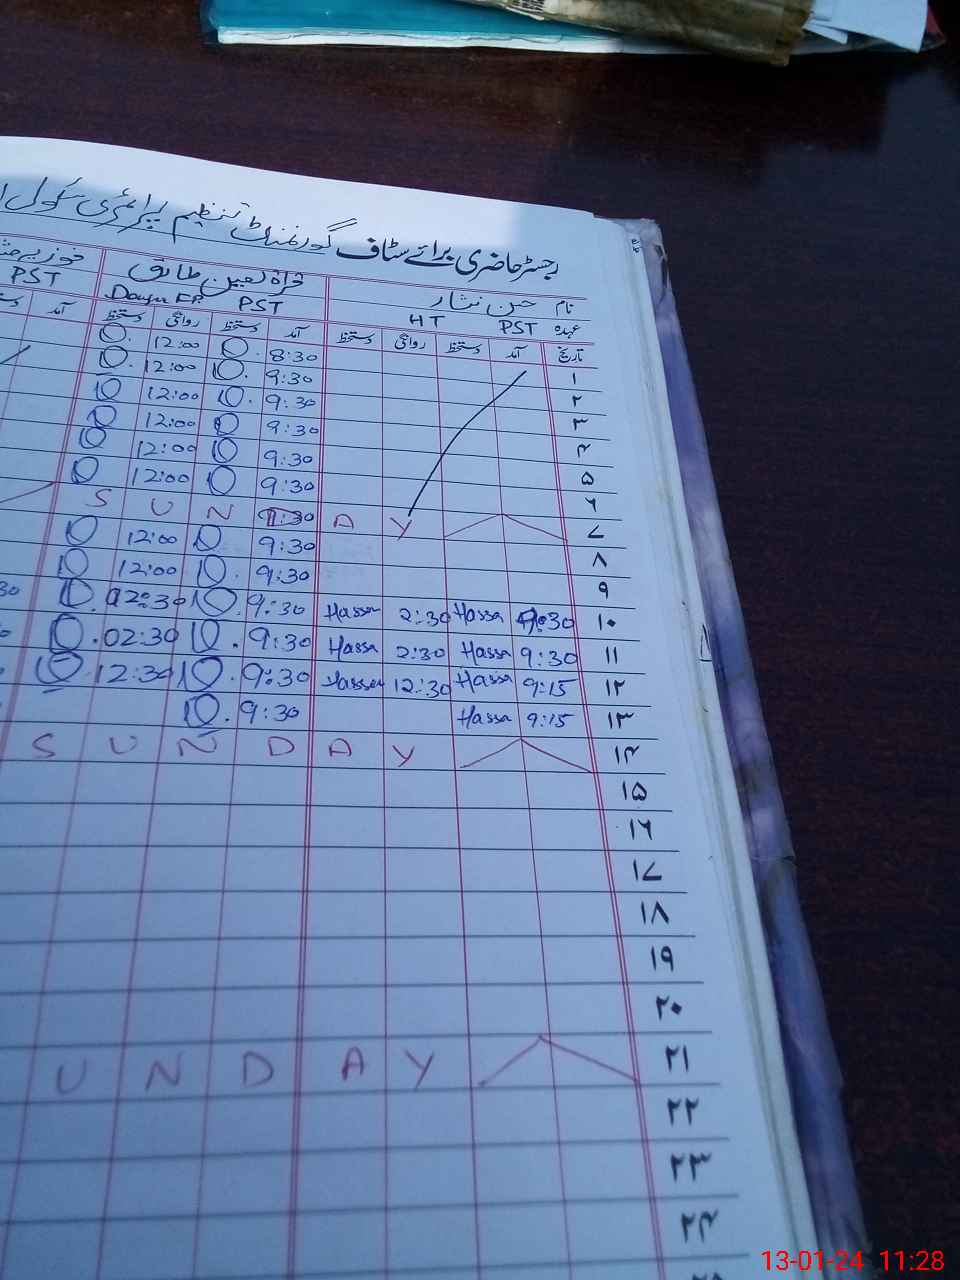 رجسٹر حاضری برائے سٹاف گورنمنٹ تنظیم پرائمری سکول
نام حسن نثار قراۃ لعین طارق
عہدہ PST HT PST
تاریخ آمد دستخط روانگی دستخط آمد دستخط روانگی دستخط آمد
۱ 8:30 12:00
۲ 9:30 12:00
۳ 9:30 12:00
۴ 9:30 12:00
۵ 9:30 12:00
۶ 9:30 12:00
۷ S U N D A Y
۸ 9:30 12:00
۹ 9:30 12:00
۱۰ 9:30 Hassa 2:30 Hassa 9:30 02:30
۱۱ 9:30 Hassa 2:30 Hassa 9:30 02:30
۱۲ 9:15 Hassa 12:30 Hassa 9:30 12:30
۱۳ 9:15 Hassa 9:30
۱۴ S U N D A Y
۱۵
۱۶
۱۷
۱۸
۱۹
۲۰
۲۱ U N D A Y
۲۲
۲۳
۲۴
13-01-24 11:28